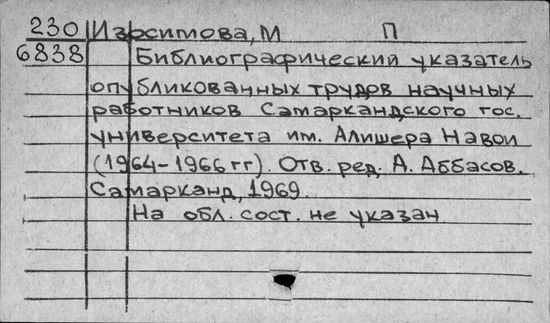 230 Изосимова, М П
6838 Библиографический указатель
опубликованных трудов научных
работников Самаркандского гос.
университета им. Алишера Навои
(1964-1966 гг). Отв. ред. А. Аббасов.
Самарканд, 1969.
На обл. сост. не указан